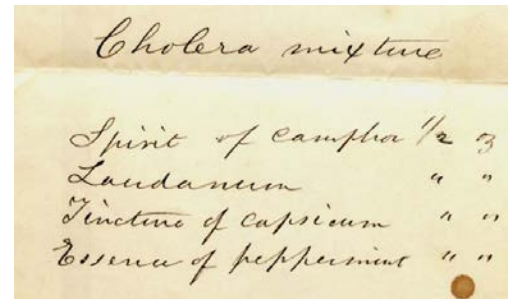 Cholera mixture
Spirit of camphor 1/2 oz
Laudanum " "
Tincture of capsicum " "
Essence of peppermint " "